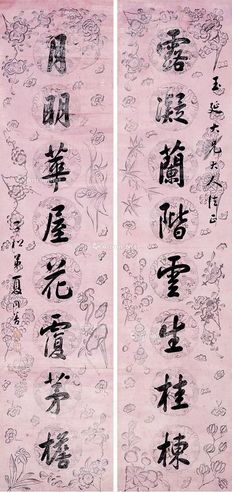 玉延大兄大人法正
露凝蘭階雲生桂棟
月明華屋花覆茅檐
子松弟夏同善